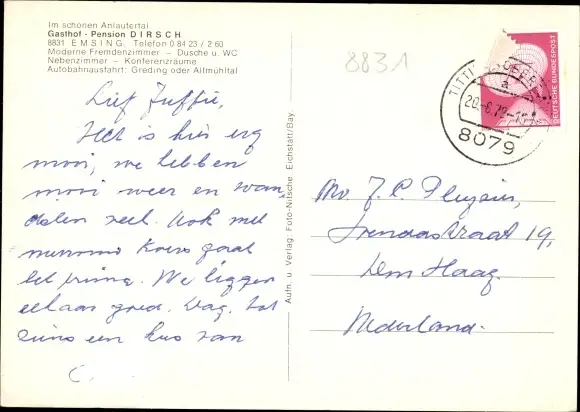 Im schönen Anlautertal
Gasthof - Pension DIRSCH
8831 EMSING, Telefon 0 84 23 / 2 60
Moderne Fremdenzimmer – Dusche u. WC
Nebenzimmer – Konferenzräume
Autobahnausfahrt: Greding oder Altmühltal
8831
TITTI
20.-6.
8079
DEUTSCHE BUNDESPOST
Lief Juffie,
Het is hier erg
mooi, we hebben
mooi weer en wan-
delen veel. Ook met
Kees gaat
het prima. We liggen
goed. Dag, tot
ziens een kus van
C.
Aufn. u. Verlag: Foto-Nitsche, Eichstätt/Bay.
J. P.
19,
Den Haag
Nederland.